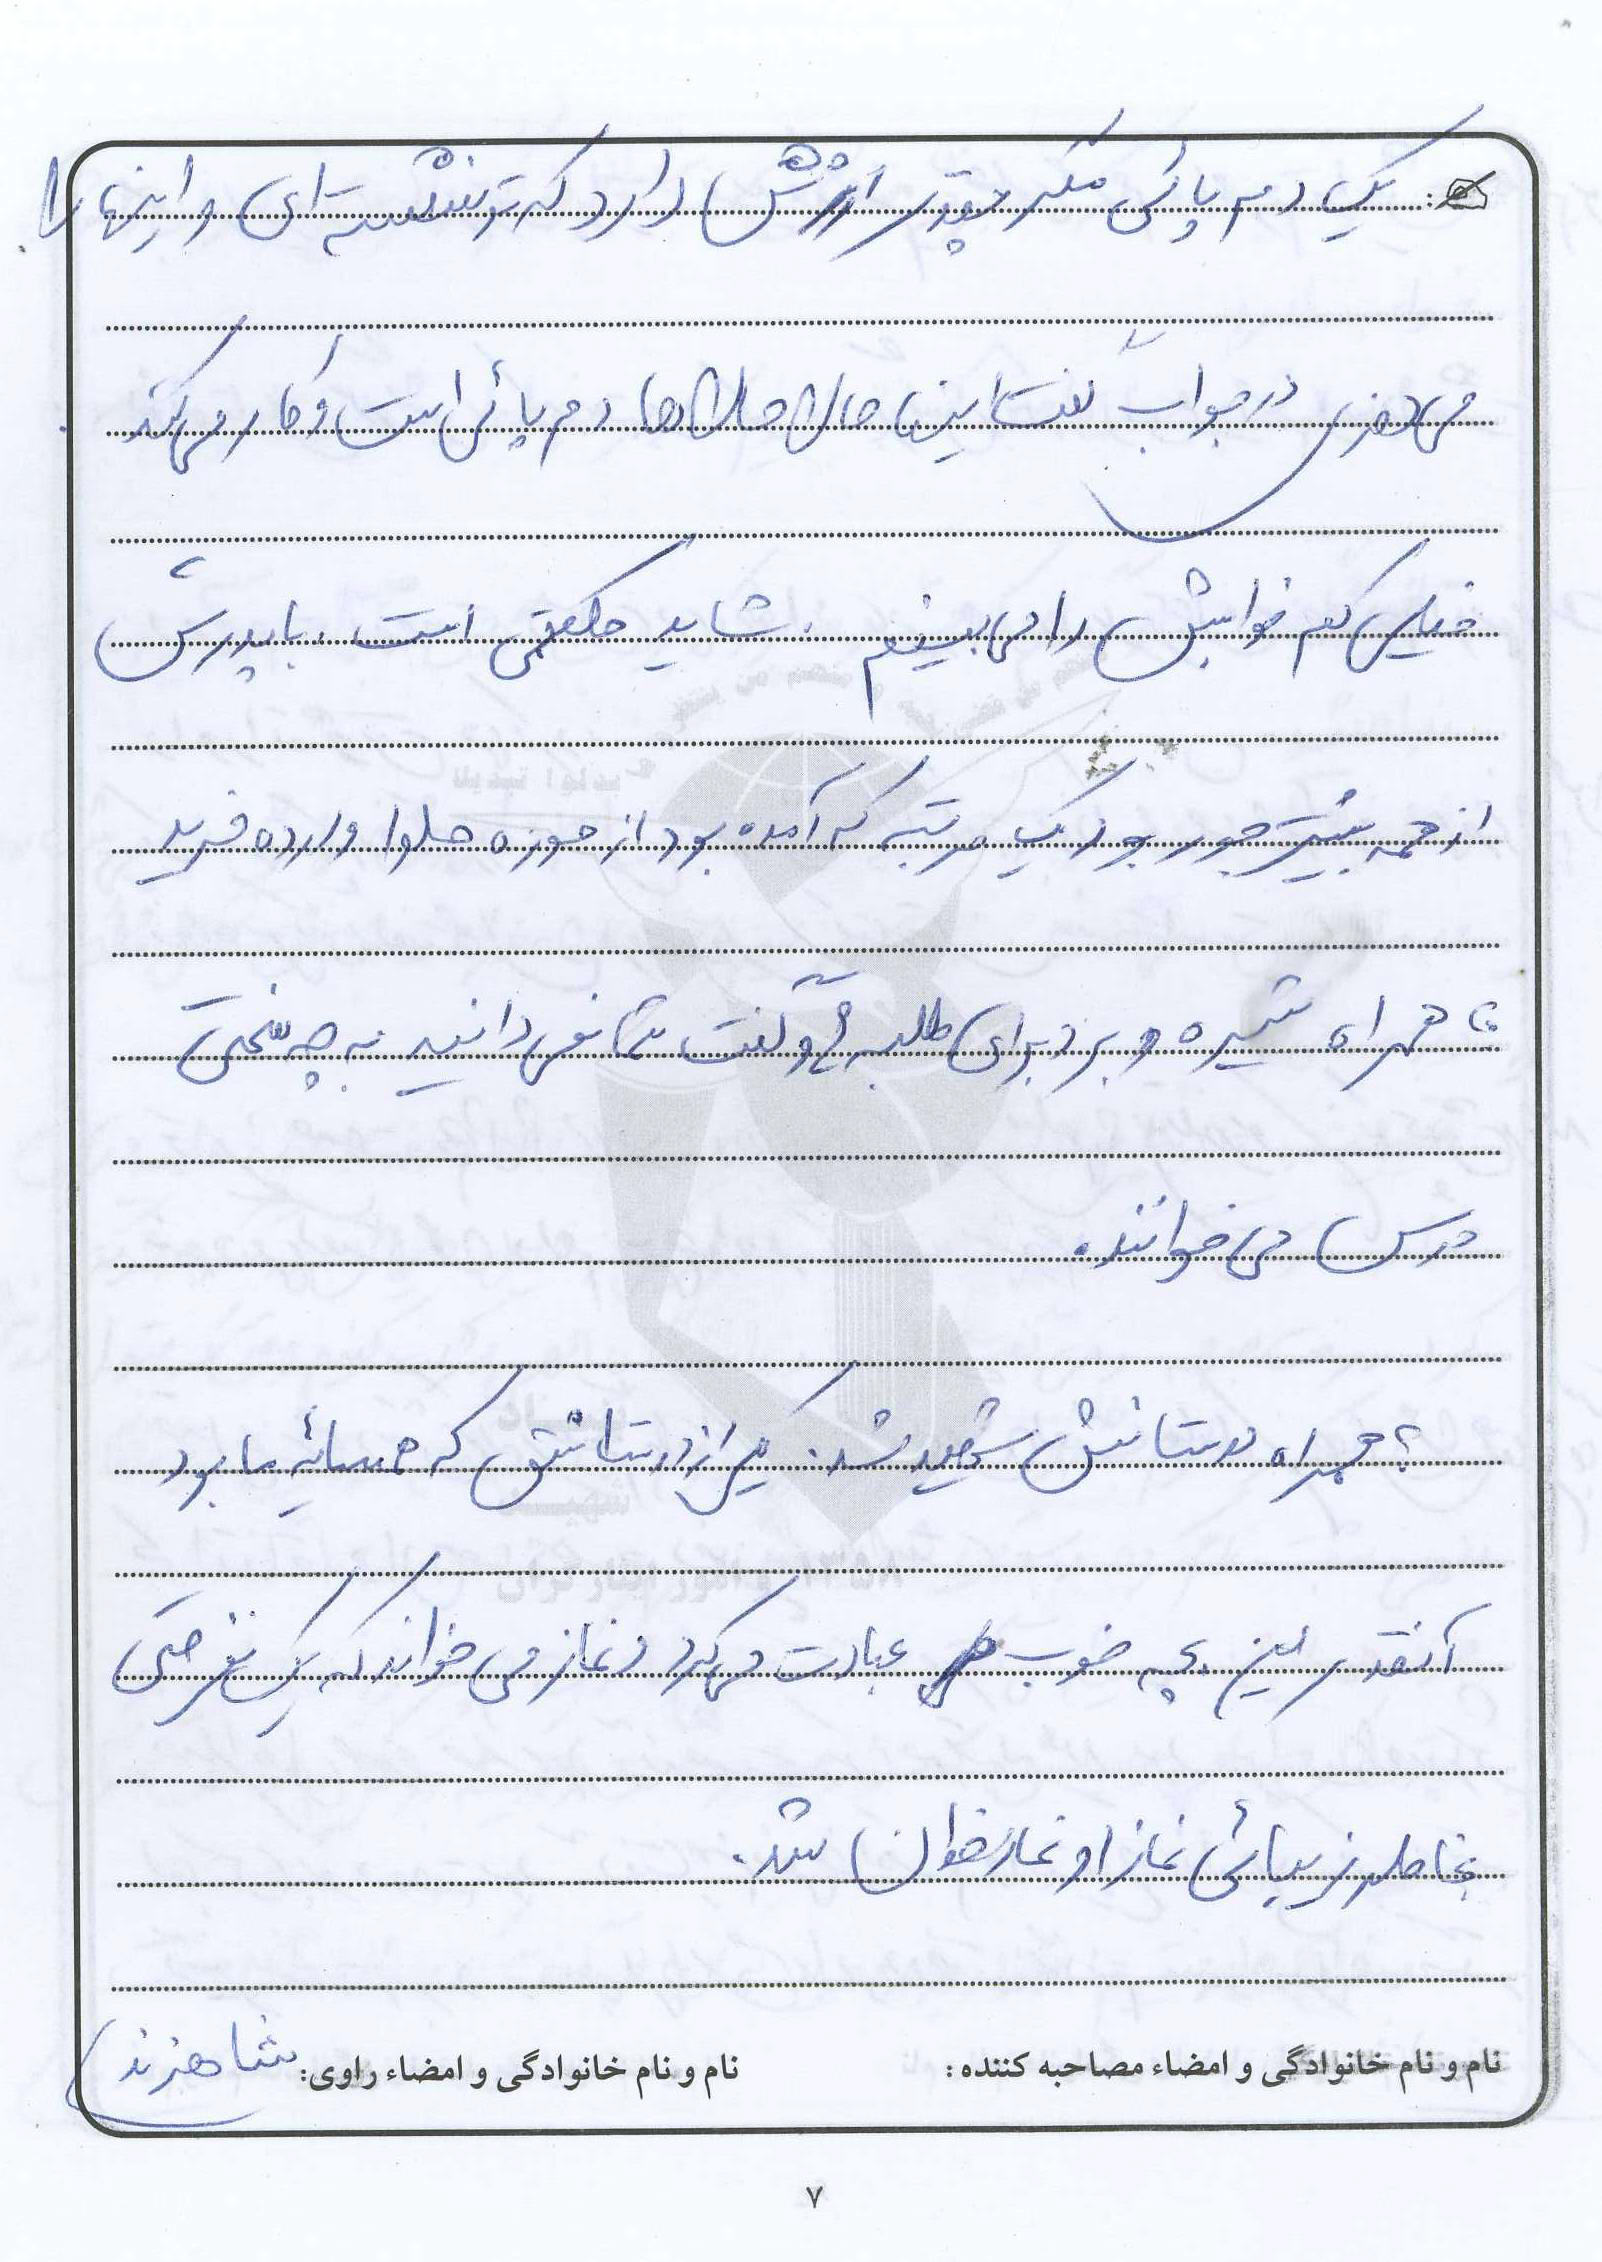 یک دم پائی مگر چقدر ارزش دارد که تو نشسته‌ای و اینها را
می‌دوزی در جواب گفت اینها حالا حالاها دم پائی است و کار می‌کند.
خیلی کم خوابش را می‌بینم. شاید حکمتی است. با پدرش
از همه بیشتر جور بود یک مرتبه که آمده بود از حوزه حلوا وارده خرید
همراه شیره و برد برای طلبه‌ها و گفت شما نمی‌دانید به چه سختی
درس می‌خوانند.
همراه دوستانش شهید شد. یکی از دوستانش که همسایۀ ما بود
آنقدر این بچه خوب عبادت می‌کرد و نماز می‌خواند که یک نفر حتی
بخاطر زیبائی نماز او نمازخوان شد.
نام و نام خانوادگی و امضاء مصاحبه کننده: نام و نام خانوادگی و امضاء راوی:
۷